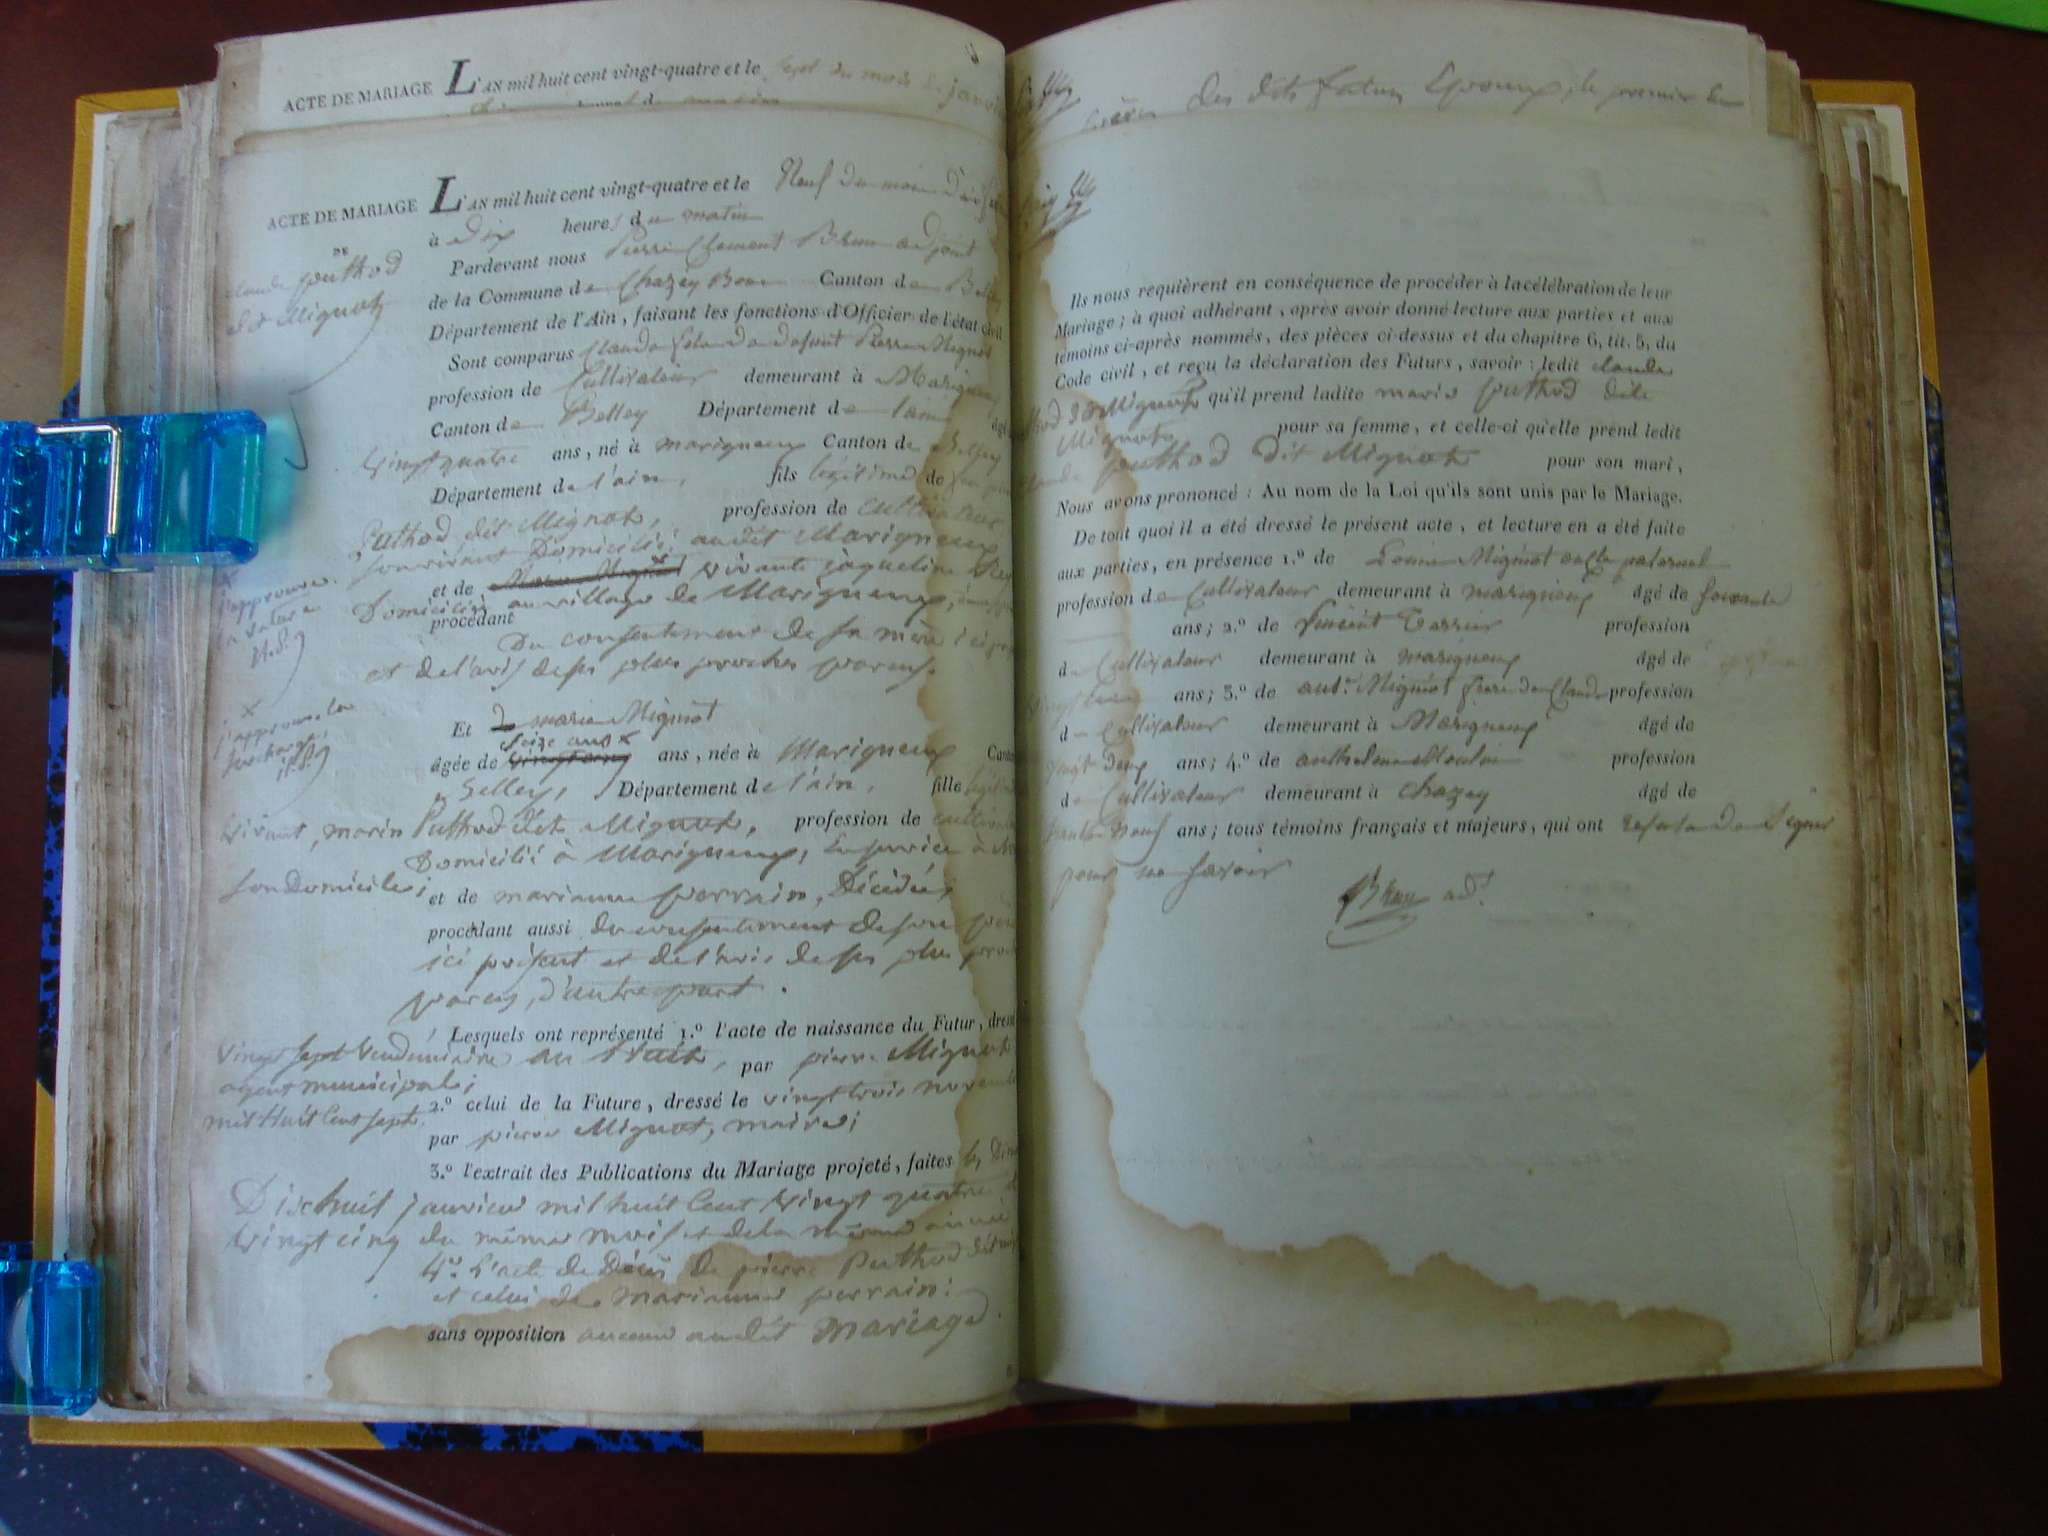 ACTE DE MARIAGE L'AN mil huit cent vingt-quatre et le sept du mois de janvier
ACTE DE MARIAGE L'AN mil huit cent vingt-quatre et le Neuf du mois
DE
claude puthod
dit Mignot
à dix heures du matin
Pardevant nous Pierre Clement Brun adjoint
de la Commune de Chazey Bons Canton de Belley
Département de l'Ain, faisant les fonctions d'Officier de l'état civil
Sont comparus Claude fils de defunt Pierre Mignot
profession de Cultivateur demeurant à Marigneux
Canton de Belley Département de l'ain âgé
vingt quatre ans, né à marigneux Canton de Belley
Département de l'ain, fils légitime de
Puthod dit Mignot, profession de cultivateur
son vivant Domicilié audit Marigneux
et de vivante jaqueline
Domiciliée au village de Marigneux,
procédant
Du consentement de sa mère ici
et de l'avis de ses plus proches parens.
j'approuve
la rature
x
j'approuve la
surcharge
Et marie Mignot
seize ans x
âgée de vingt ans ans, née à Marigneux Canton
Belley, Département de l'ain, fille
vivant, marin Puthod dit Mignot, profession de cultivateur
Domicilié à Marigneux,
son Domicile;
et de marianne perrain, Décédée,
procédant aussi du consentement de son père
ici présent et de l'avis de ses plus
parens, d'autre part.
Lesquels ont représenté 1.º l'acte de naissance du Futur, dressé
vingt sept Vendemiaire an huit, par pierre Mignot
agent municipal;
2.º celui de la Future, dressé le vingt trois novembre
mil huit Cent sept,
par pierre Mignot, maire;
3.º l'extrait des Publications du Mariage projeté, faites les
Dixhuit janvier mil huit Cent vingt quatre
vingt cinq du même mois et de la même année
4.º L'acte de Décès de pierre Puthod dit
et celui de marianne perrain:
sans opposition aucune audit mariage.
Des dits futurs Epoux, le premier
Ils nous requièrent en conséquence de procéder à la célébration de leur
Mariage; à quoi adhérant, après avoir donné lecture aux parties et aux
témoins ci-après nommés, des pièces ci-dessus et du chapitre 6, tit. 5, du
Code civil, et reçu la déclaration des Futurs, savoir: ledit claude
Mignot qu'il prend ladite marie puthod dite
Mignot pour sa femme, et celle-ci qu'elle prend ledit
claude puthod dit Mignot pour son mari,
Nous avons prononcé: Au nom de la Loi qu'ils sont unis par le Mariage.
De tout quoi il a été dressé le présent acte, et lecture en a été faite
aux parties, en présence 1.º de Louis Mignot oncle paternel
profession de Cultivateur demeurant à marigneux âgé de soixante
ans; 2.º de Vincent profession
de Cultivateur demeurant à marigneux âgé de
ans; 3.º de ant.e Mignot frere de Claude profession
de Cultivateur demeurant à Marigneux âgé de
vingt deux ans; 4.º de anthelme Moulin profession
de Cultivateur demeurant à chazey âgé de
trente Neuf ans; tous témoins français et majeurs, qui ont de signer
pour ne savoir
Brun adt